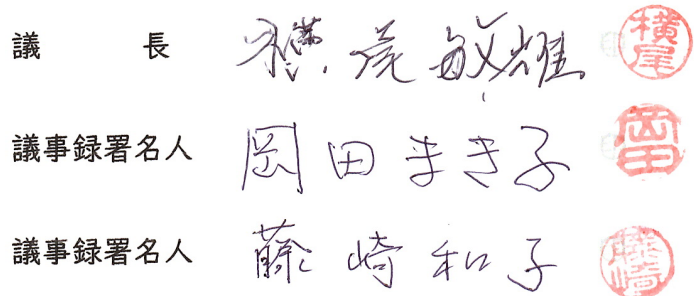 議長 横尾敏雄 横尾
議事録署名人 岡田まき子 岡田
議事録署名人 藤崎和子 藤崎